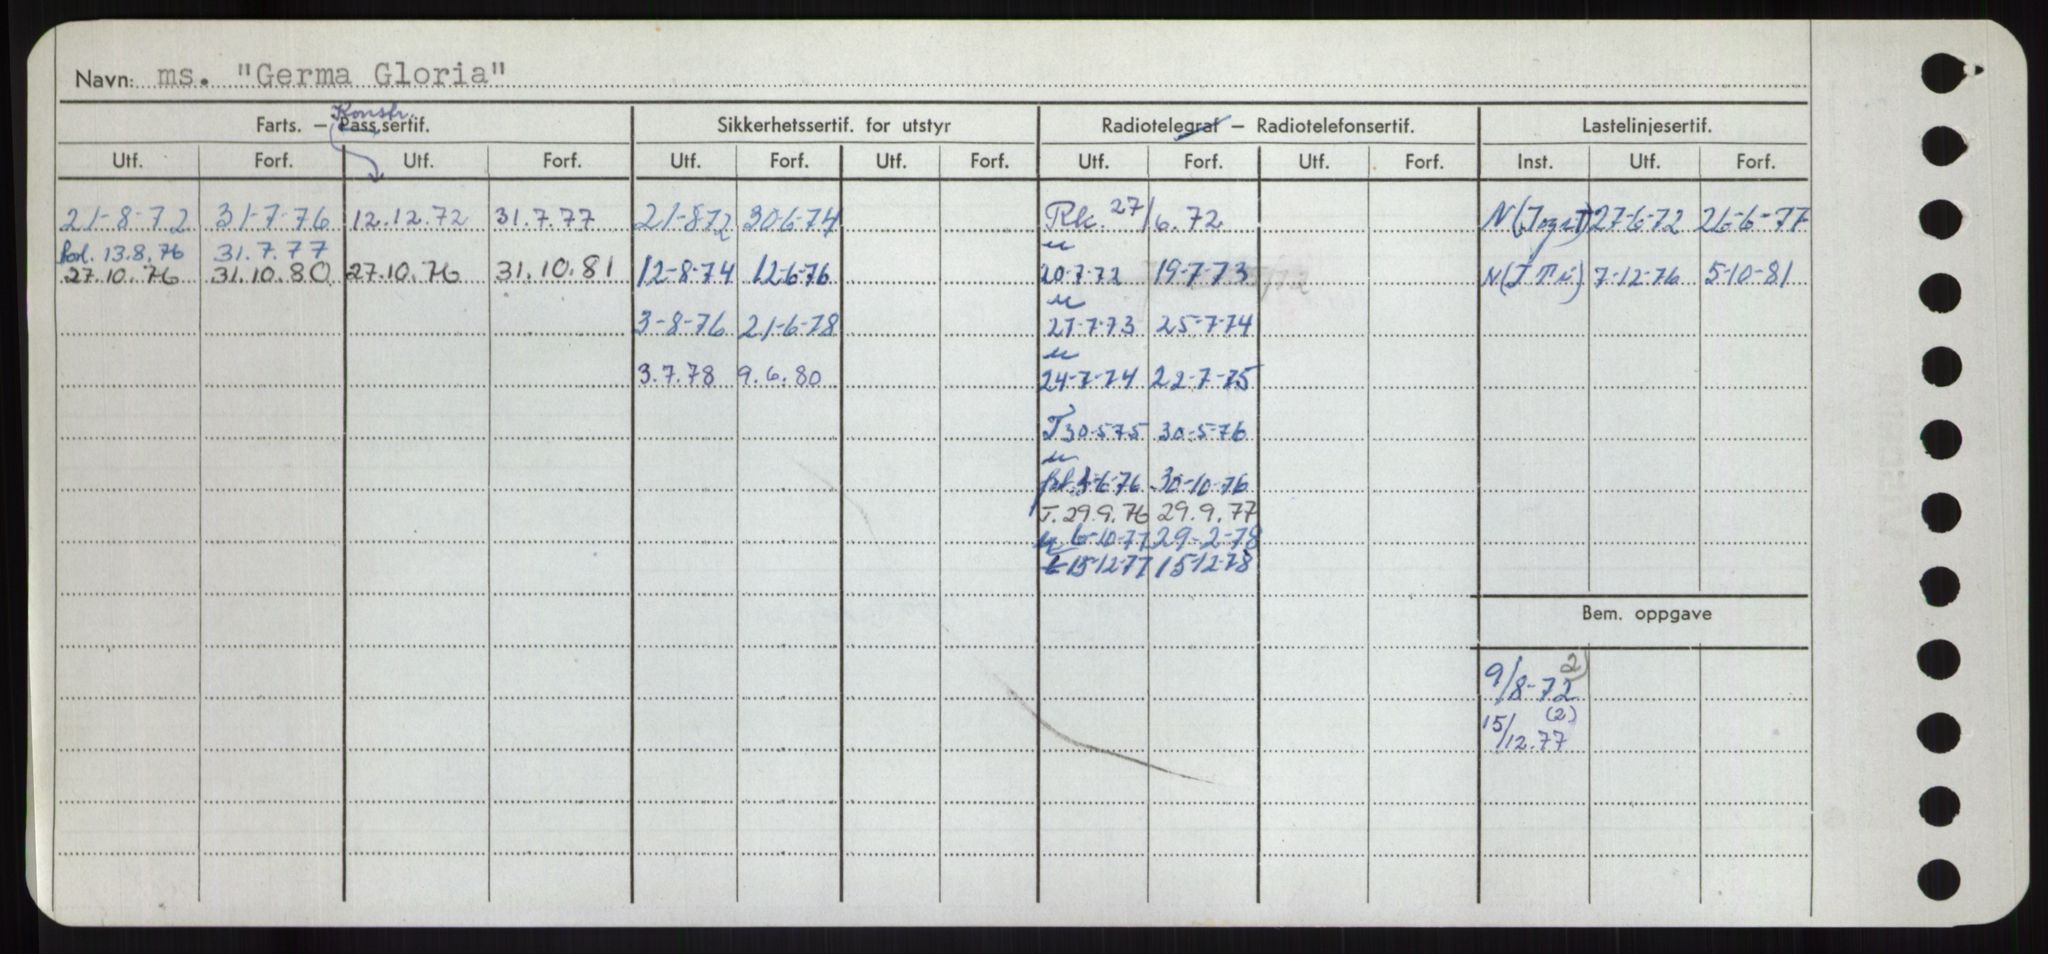 Navn: ms. "Germa Gloria"
Konstr.
Farts. — Pass.sertif. Sikkerhetssertif. for utstyr Radiotelegraf — Radiotelefonsertif. Lastelinjesertif.
Utf. Forf. Utf. Forf. Utf. Forf. Utf. Forf. Utf. Forf. Utf. Forf. Inst. Utf. Forf.
21-8-72 31-7-76 12.12.72 31.7.77 21-8-72 30-6-74 Rk. 27/6.72 27-6-72 26-6-77
forl. 13.8.76 31.7.77
27.10.76 31.10.80 27.10.76 31.10.81 12-8-74 12-6-76 20-7-72 19-7-73 7-12-76 5-10-81
3-8-76 21-6-78 27-7-73 25-7-74
3.7.78 9.6.80 24-7-74 22-7-75
T 30-5-75 30-5-76
-6-76 30-10-76
T. 29.9.76 29.9.77
6-10-77 29-2-78
t 15-12-77 15-12-78
Bem. oppgave
9/8-72 2)
15/12.77 (2)